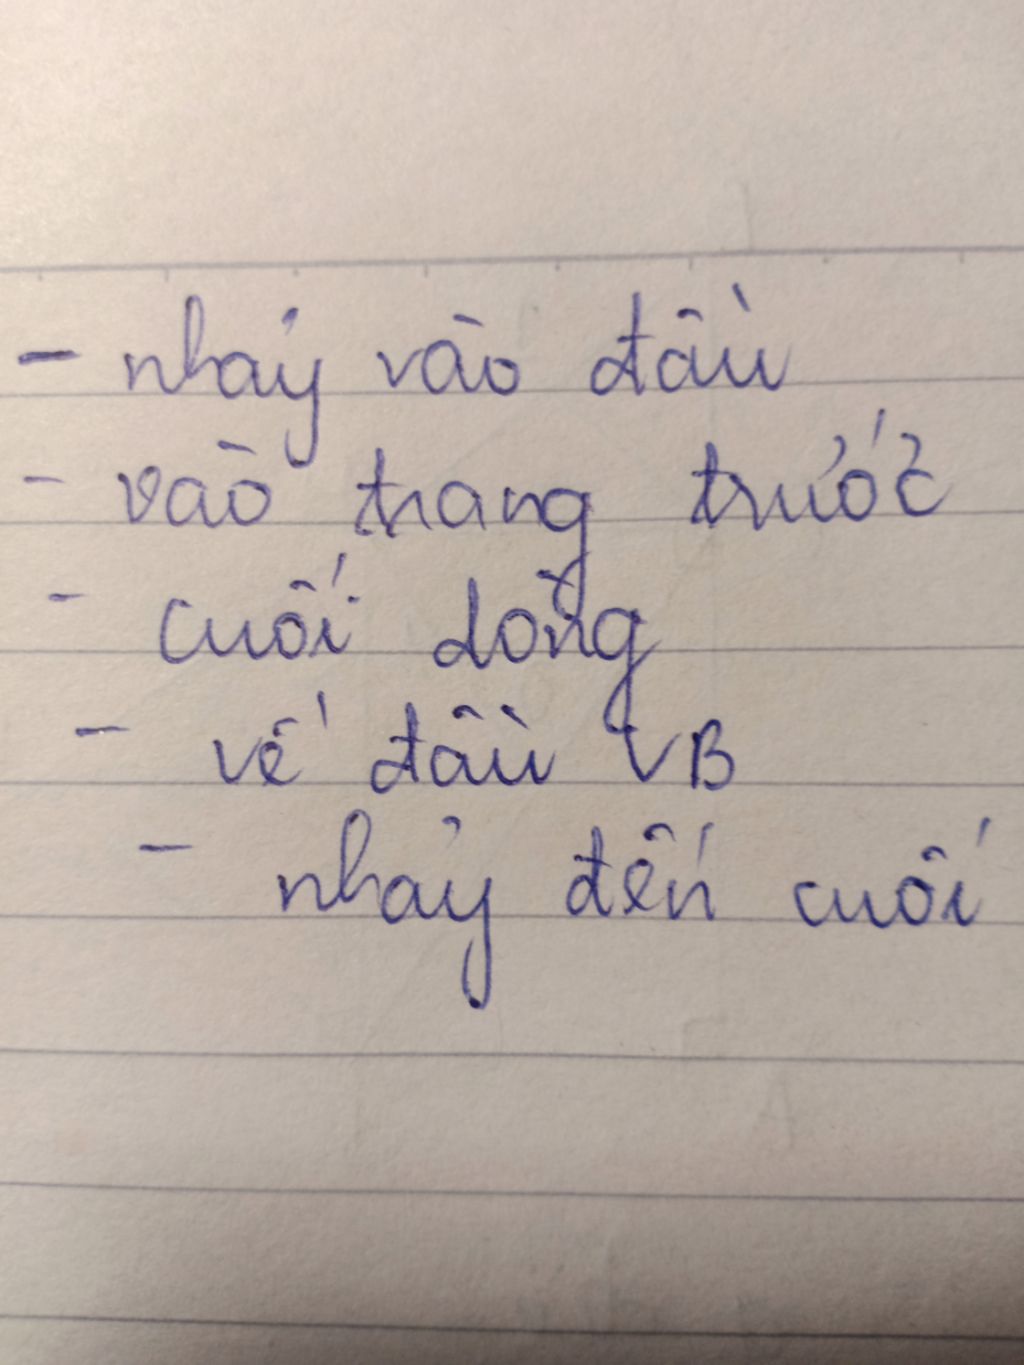 - nhảy vào đầu
- vào trang trước
- cuối dòng
- về đầu VB
- nhảy đến cuối